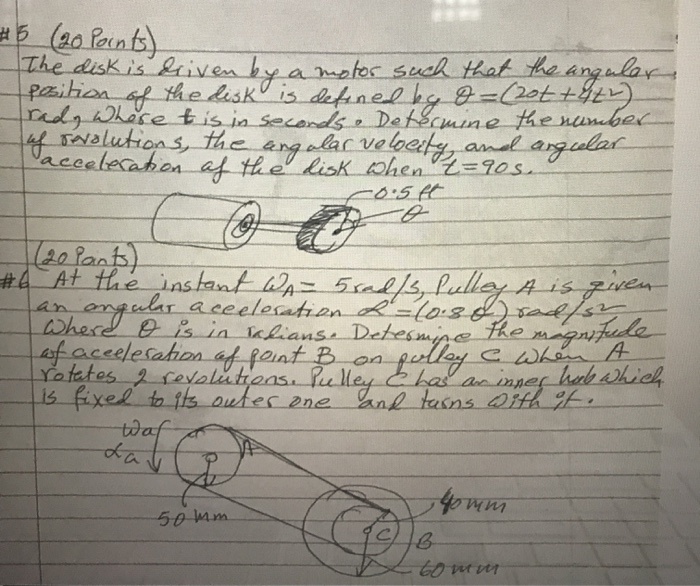 #5 (20 Points)
The disk is driven by a motor such that the angular
position of the disk is defined by θ = (20t + 4t²)
rad, where t is in seconds. Determine the number
of revolutions, the angular velocity, and angular
acceleration of the disk when t = 90 s.
0.5 ft
θ
(20 Points)
#6 At the instant ωA = 5 rad/s, Pulley A is given
an angular acceleration α = (0.8 θ) rad/s²
where θ is in radians. Determine the magnitude
of acceleration of point B on pulley C when A
rotates 2 revolutions. Pulley C has an inner hub which
is fixed to its outer one and turns with it.
ωa
αa
A
50 mm
40 mm
C
B
60 mm